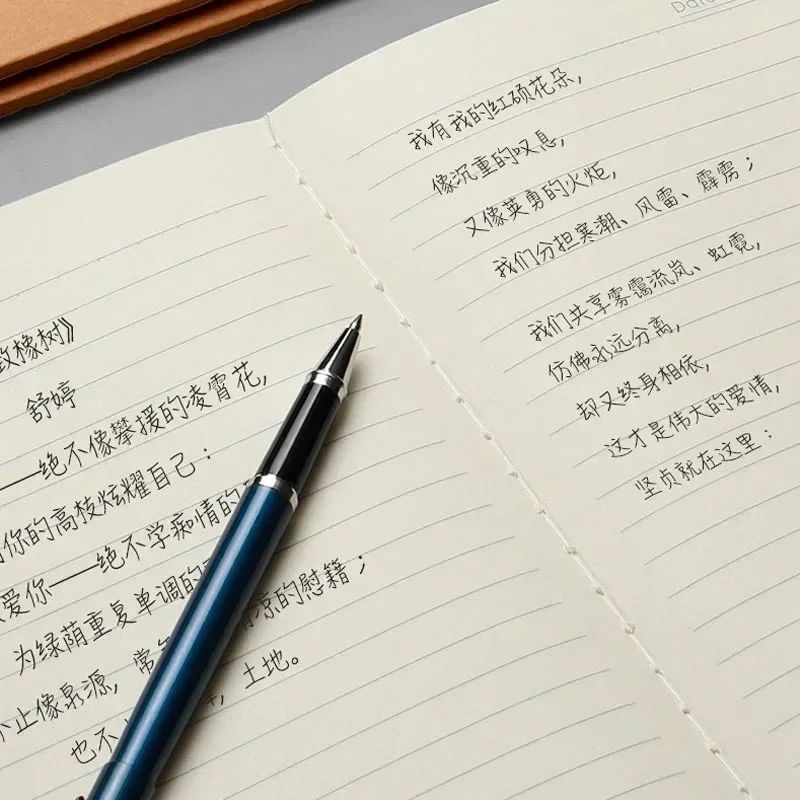 Date
致橡树》
舒婷
——绝不像攀援的凌霄花，
你的高枝炫耀自己：
爱你——绝不学痴情的
为绿荫重复单调的
不止像泉源，常 凉的慰籍；
也不 ，土地。
我有我的红硕花朵，
像沉重的叹息，
又像英勇的火炬，
我们分担寒潮、风雷、霹雳；
我们共享雾霭流岚、虹霓，
仿佛永远分离，
却又终身相依，
这才是伟大的爱情，
坚贞就在这里：